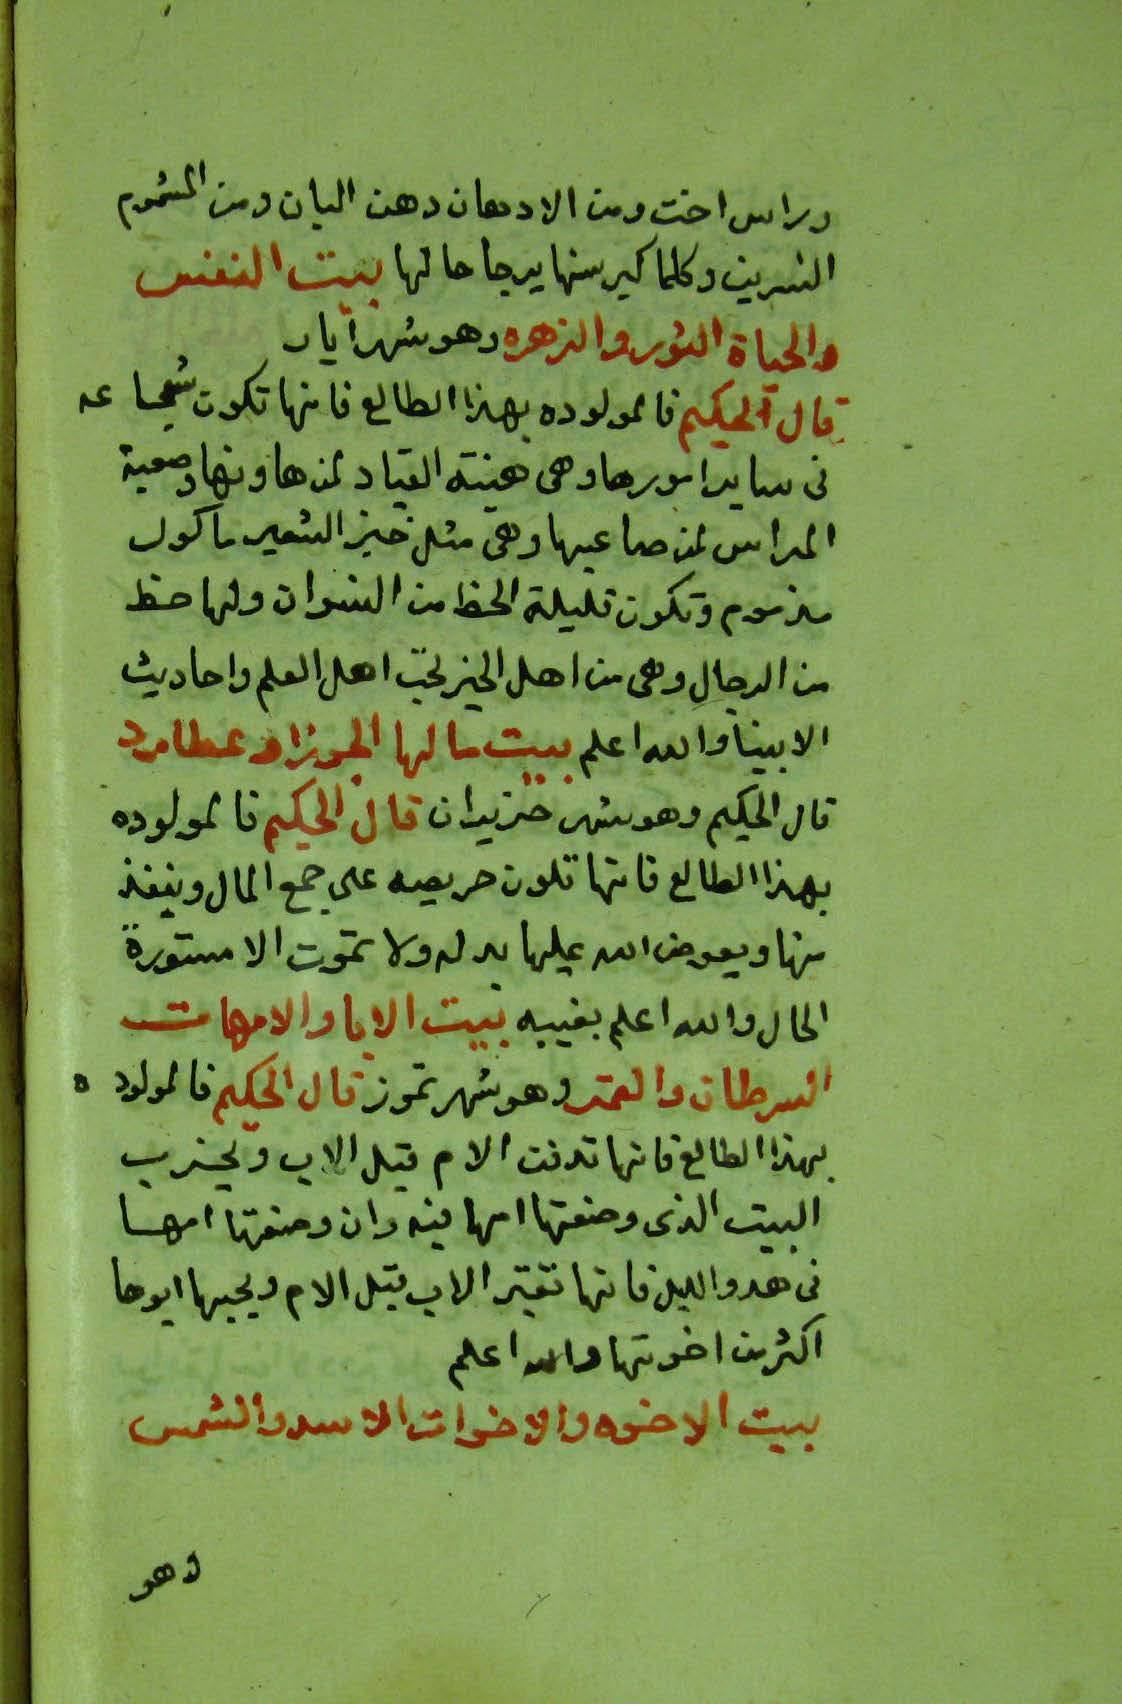 وراس اخت ومن الادهان دهن البان ومن المشموم
النسرين وكلما كبر سنها يرجا حالها بيت النفس
والحياة الثور والزهره وهو شهر ايار
قال الحكيم فالمولوده بهذا الطالع فانها تكون شجاعه
فى ساير امورها وهى هينة القياد لمن هاونها وصعبة
المراس لمن صاعبها وهى مثل خبز الشعير ماكول
مذموم وتكون قليلة الحظ من النسوان ولها حظ
من الرجال وهى من اهل الخير تحب اهل العلم واحاديث
الانبيا والله اعلم بيت مالها الجوزا وعطارد
قال الحكيم وهو شهر حزيران قال الحكيم فالمولوده
بهذا الطالع فانها تكون حريصه على جمع المال وينفذ
منها ويعوض الله عليها بدله ولا تموت الا مستورة
الحال والله اعلم بغيبه بيت الابا والامهات
السرطان والقمر وهو شهر تموز قال الحكيم فالمولوده
بهذا الطالع فانها تدفن الام قبل الاب ويخرب
البيت الذى وضعتها امها فيه وان وضعتها امها
فى هدو الليل فانها تقبر الاب قبل الام ويحبها ابوها
اكثر من اخوتها والله اعلم
بيت الاخوه والاخوات الاسد والشمس
وهو